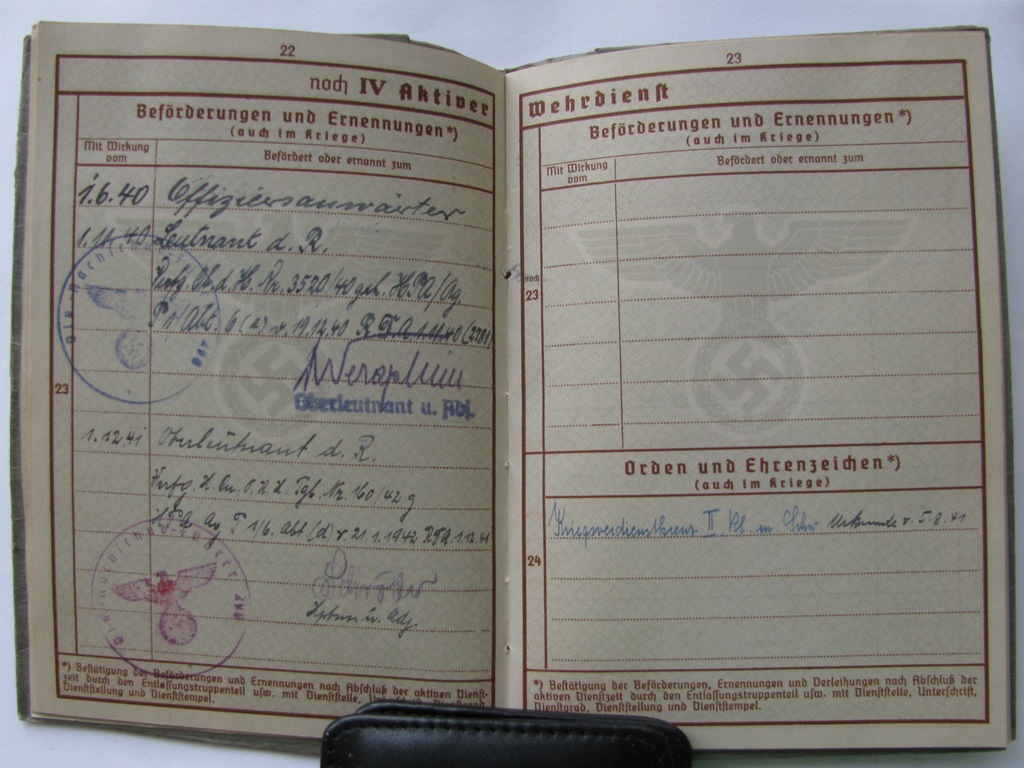 22
noch IV Aktiver
Beförderungen und Ernennungen*)
(auch im Kriege)
Mit Wirkung vom
Befördert oder ernannt zum
1.6.40 Offiziersanwärter
1.11.40 Leutnant d. R.
Verfg. Ob. d. H. Nr. 3520/40 geh. H.P.A/Ag
P 1/Abt. 6 (a) v. 19.12.40 R.D.A. 1.11.40 (2781)
Oberleutnant u. Adj.
23
1.12.41 Oberleutnant d. R.
Verfg. O.K.H. Tgb. Nr. 160/42 g
H.P.A. Ag P 1/6. Abt. (d) v. 21.1.1942 R.D.A. 1.12.41
Hptm. u. Adj.
*) Bestätigung der Beförderungen und Ernennungen nach Abschluß der aktiven Dienst-
zeit durch den Entlassungstruppenteil usw. mit Dienststelle, Unterschrift, Dienstgrad,
Dienststellung und Dienststempel.
23
Wehrdienst
Beförderungen und Ernennungen*)
(auch im Kriege)
Mit Wirkung vom
Befördert oder ernannt zum
noch
23
Orden und Ehrenzeichen*)
(auch im Kriege)
Kriegsverdienstkreuz II. Kl. m. Schw. Urkunde v. 5.8.41
24
*) Bestätigung der Beförderungen, Ernennungen und Verleihungen nach Abschluß der
aktiven Dienstzeit durch den Entlassungstruppenteil usw. mit Dienststelle, Unterschrift,
Dienstgrad, Dienststellung und Dienststempel.